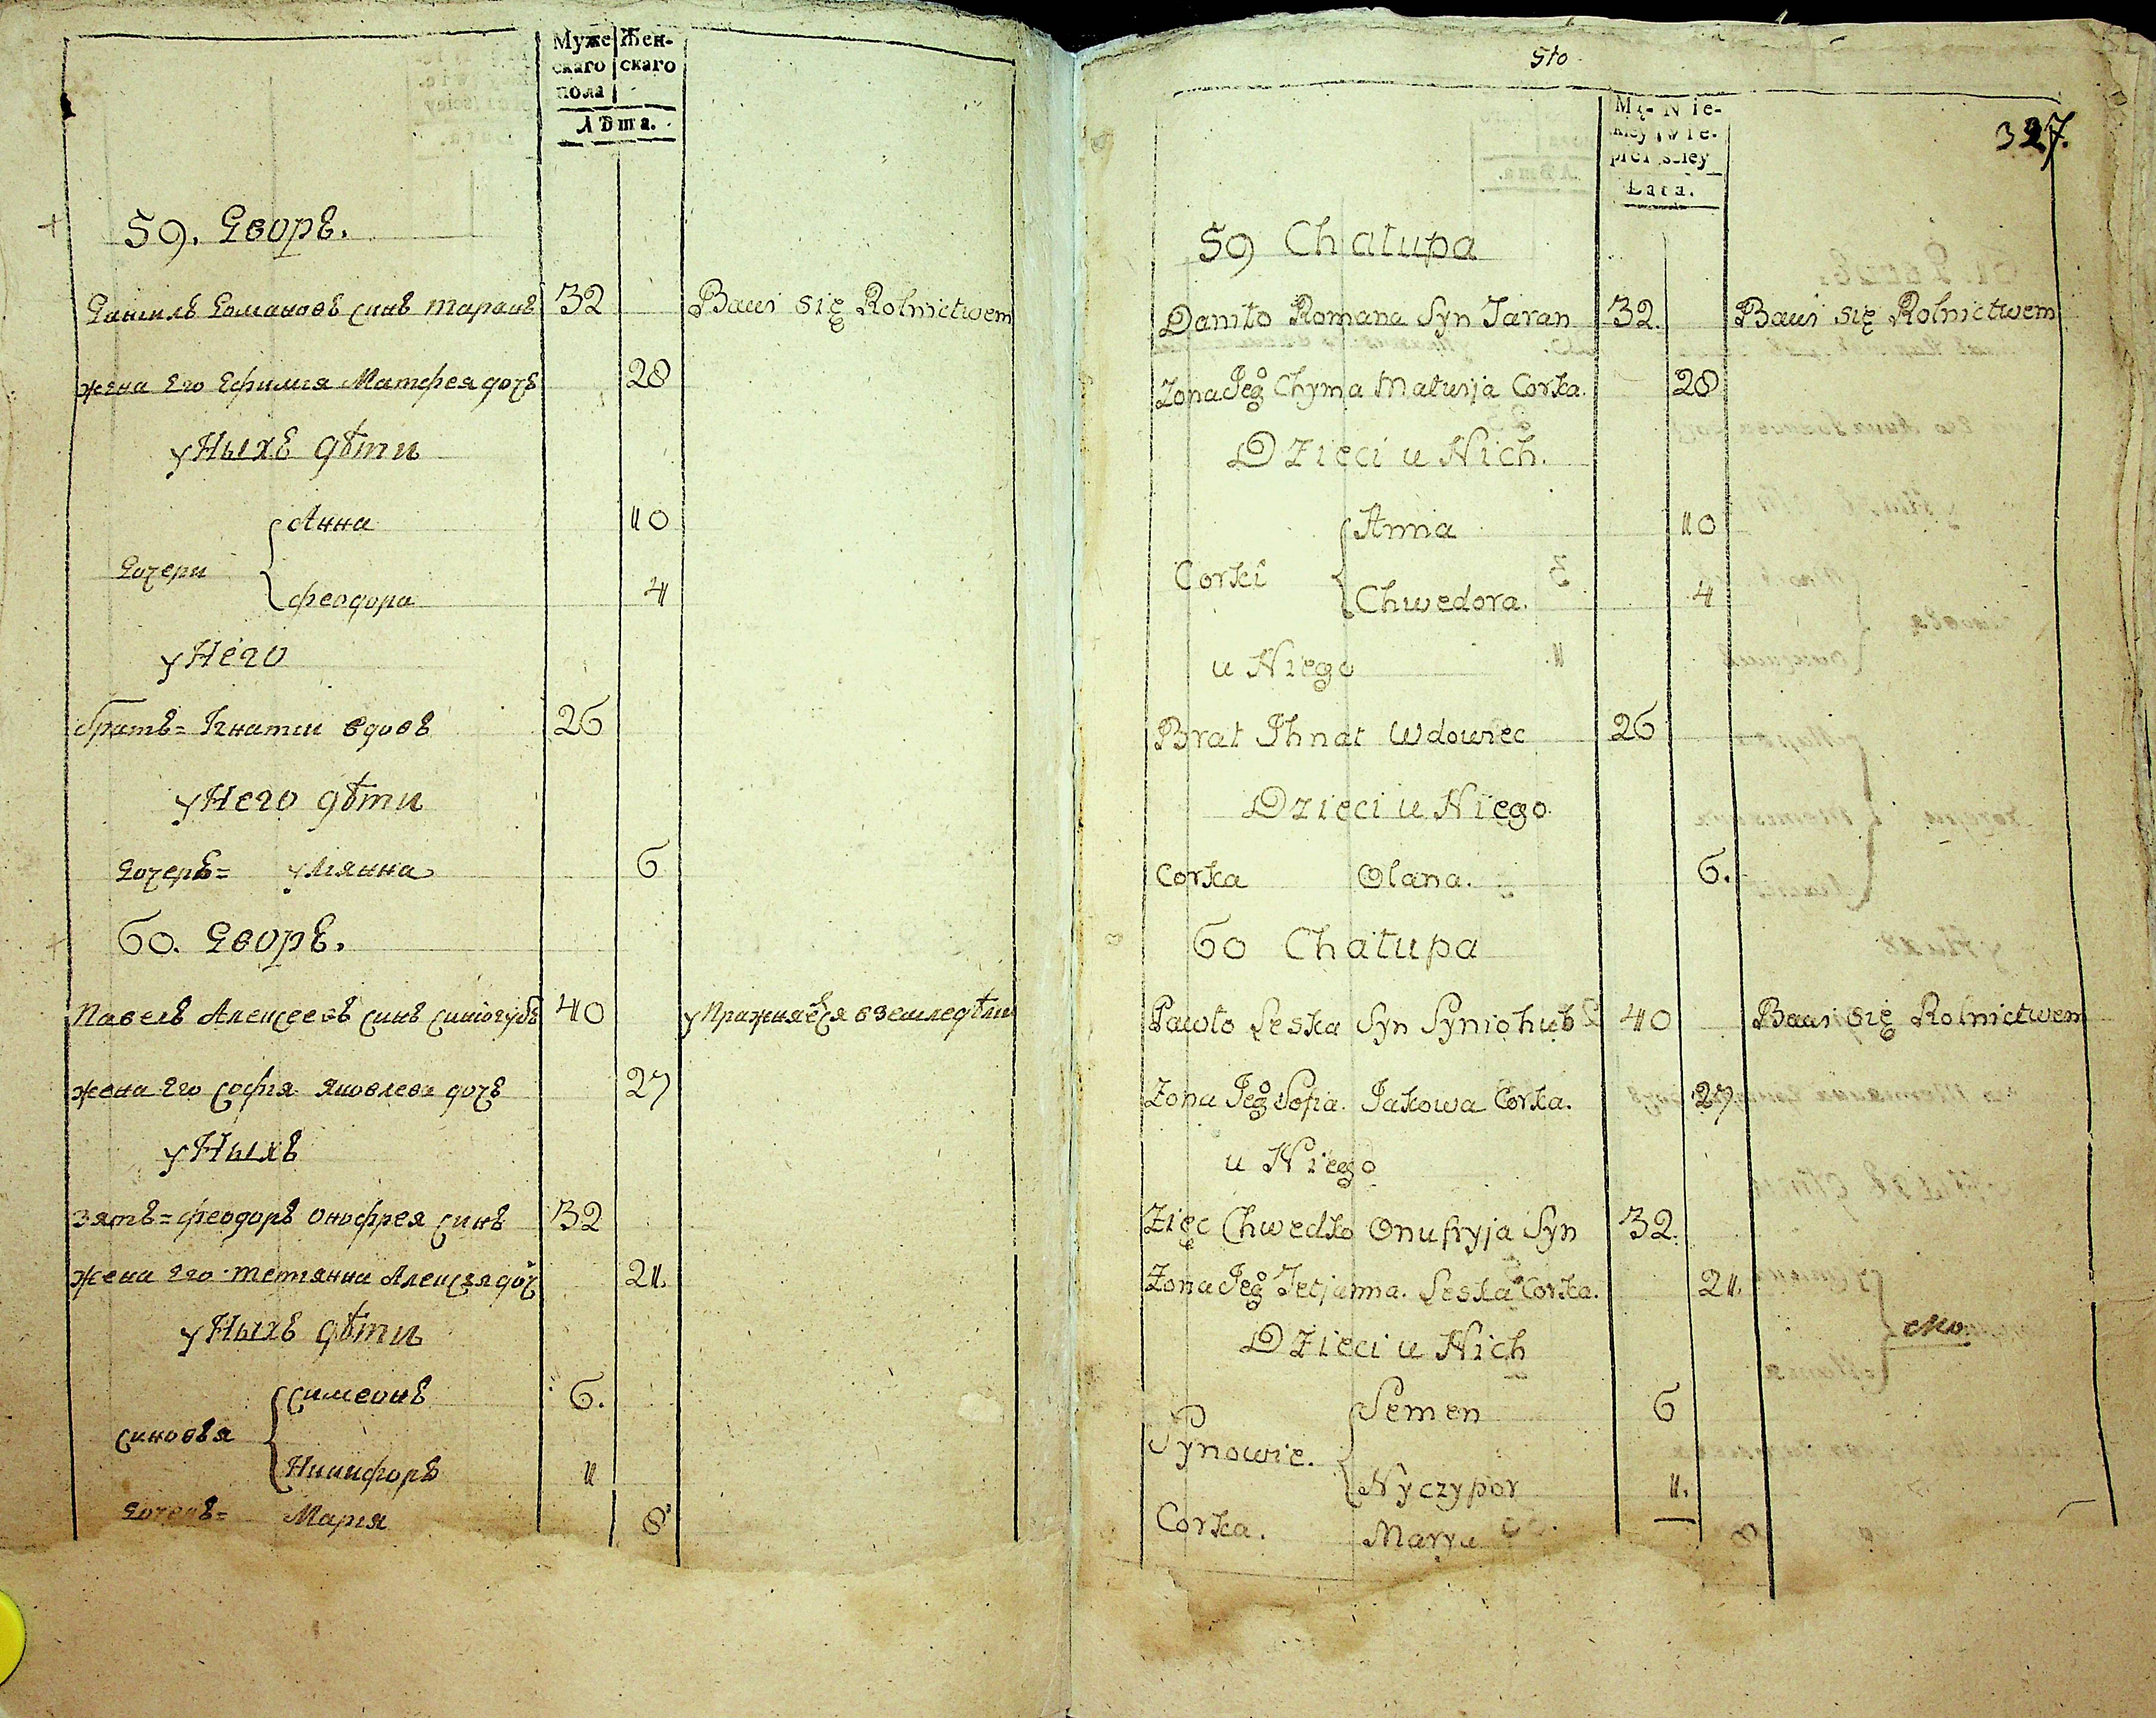 Муже Жен-
скаго скаго
пола
Лѣта.
59. Дворъ.
Данилъ Романовъ синъ Таранъ 32 Bawi się Rolnictwem
жена Его Ефимия Матфея дочъ 28
у Ныхъ дѣти
Дочери { Анна 10
Феодора 4
у Него
братъ = Игнатии вдовъ 26
у Него дѣти
Дочеръ = улянна 6
60. Дворъ.
Павелъ Алексеевъ синъ синіогубъ 40
жена Его София Яковлева дочъ 27
у Ныхъ
зятъ = Феодоръ Онофрея синъ 32
жена Его Тетянна Алексѣя доч 21.
у Ныхъ дѣти
синовья { симеонъ 6.
Никифоръ 1
Дочеръ = Мария 8
5to
327.
Mę- Nie-
wie-
sciey
Lata.
59 Chałupa
Daniło Romana Syn Taran 32. Bawi się Rolnictwem
Zona Jego Chyma Matwija Corka. 28
Dzieci u Nich.
Corki { Anna 10
Chwedora. 4
u Niego
Brat Ihnat Wdowiec 26
Dzieci u Niego.
Corka Olana. 6.
60 Chałupa
Pawło Leska Syn Syniohub 40 Bawi się Rolnictwem
Zona Jego Sofia. Jakowa Corka. 27
u Niego
Zięc Chwedko Onufryja Syn 32.
Zona Jego Tetjanna. Leska Corka. 21.
Dzieci u Nich
Synowie. { Semen 6
Nyczypor 1.
Corka. Marya 8